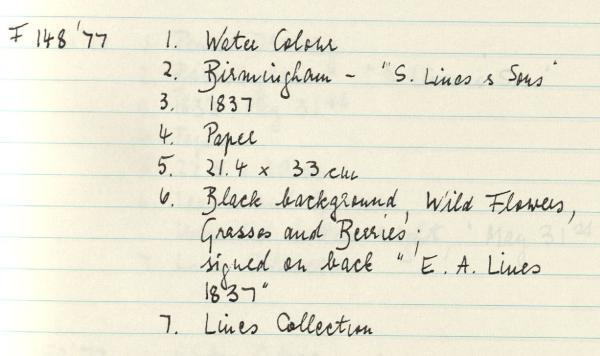 F 148 '77 1. Water Colour
2. Birmingham - "S. Lines & Sons"
3. 1837
4. Paper
5. 21.4 x 33 cm
6. Black background, Wild Flowers,
Grasses and Berries;
signed on back "E. A. Lines
1837"
7. Lines Collection